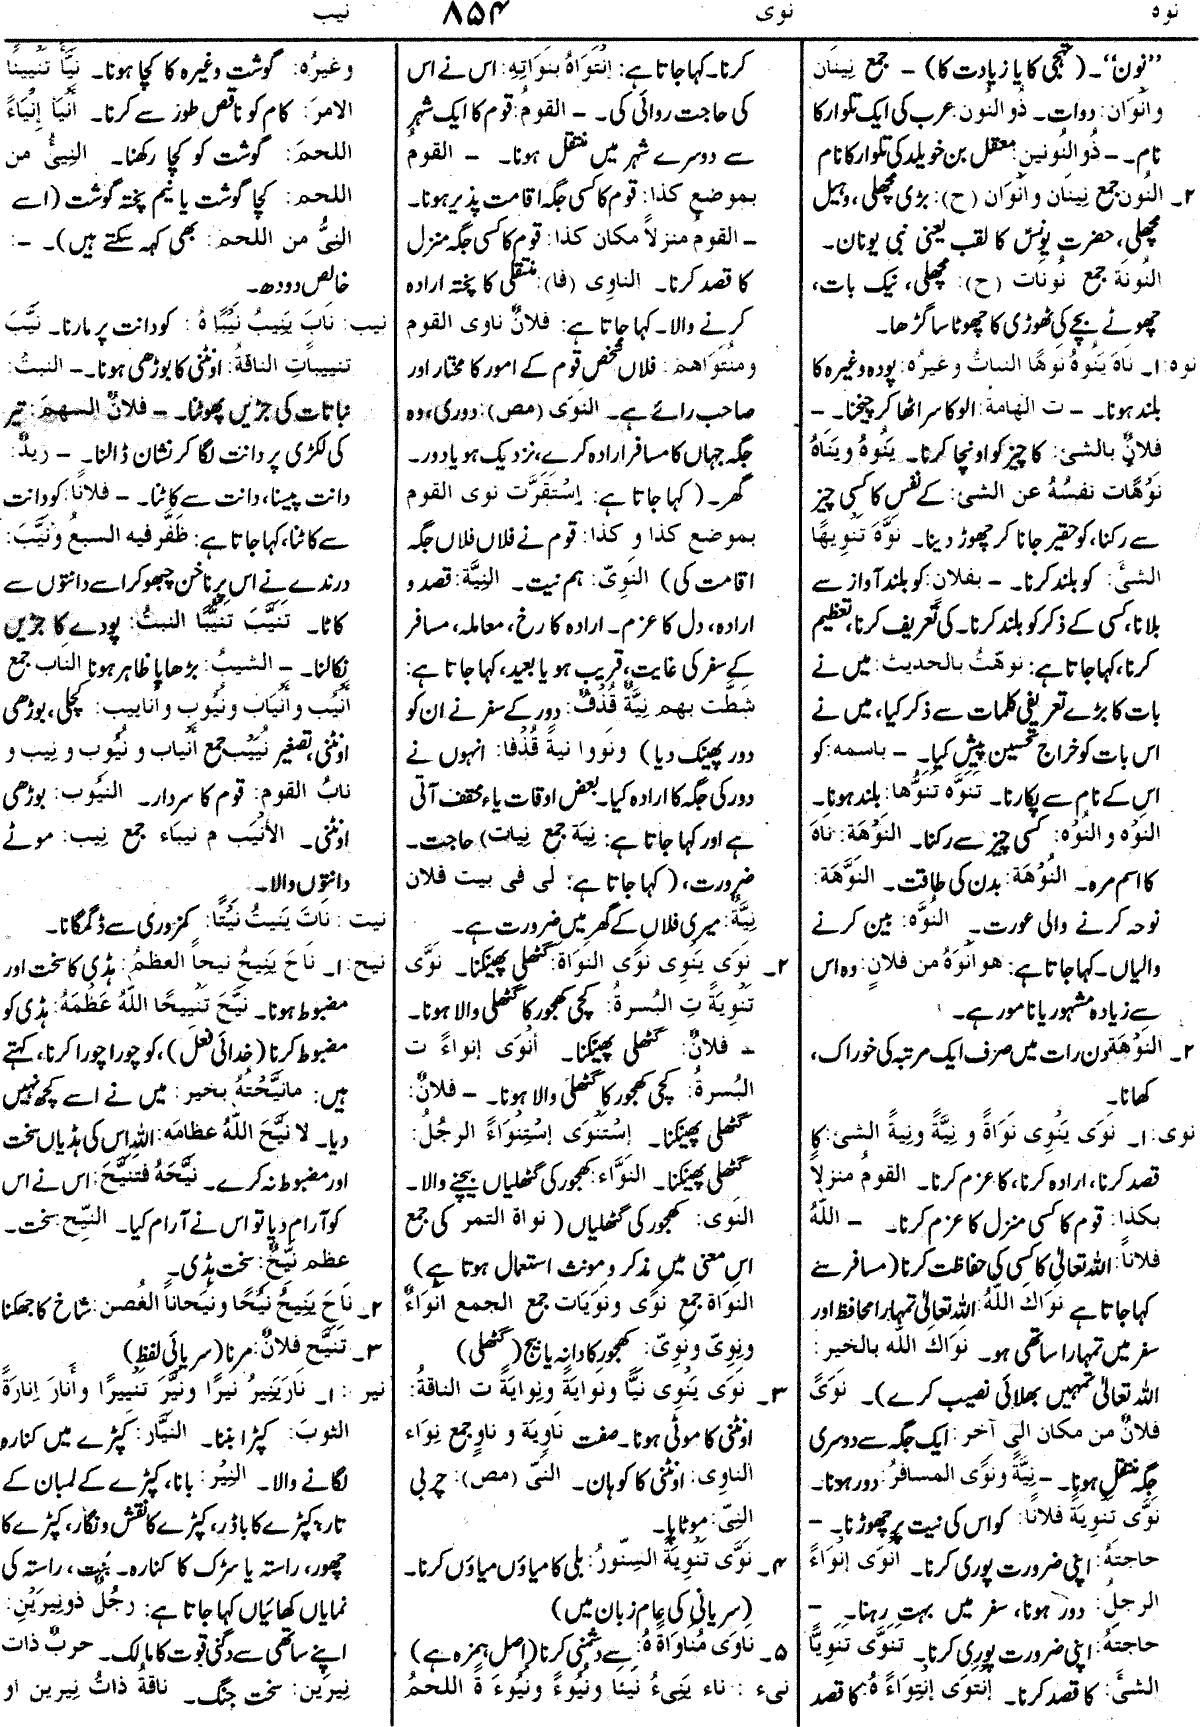 نوہ
نوی
۸۵۴
نیب
”نون“۔ (تہجی کا یا زیادت کا) – جمع نِینَان
وأنوان: دوات۔ ذُو النُون: عرب کی ایک تلوار کا
نام۔ – ذُو النُونین: معقل بن خویلد کی تلوار کا نام
۲۔ النُون جمع نِینان و أنوان (ح): بڑی مچھلی، وہیل
مچھلی، حضرت یونسؑ کا لقب یعنی نبی یونان۔
النُونَة جمع نُونات (ح): مچھلی، نیک بات،
چھوٹے بچے کی ٹھوڑی کا چھوٹا سا گڑھا۔
نوہ: ۱۔ نَاهَ یَنُوهُ نَوهًا النباتُ وغیرُہ: پودہ وغیرہ کا
بلند ہونا۔ – ت الهَامةُ: الو کا سر اٹھا کر چیخنا۔ –
فلانٌ بالشیٔ: کا چیز کو اونچا کرنا۔ یَنُوهُ ویَنَاهُ
نَوهًات نفسُهُ عن الشیٔ: کے نفس کا کسی چیز
سے رکنا، کو حقیر جانا کر چھوڑ دینا۔ نَوَّهَ تَنوِیهًا
الشیٔ: کو بلند کرنا۔ – بفلان: کو بلند آواز سے
بلانا، کسی کے ذکر کو بلند کرنا۔ کی تعریف کرنا، تعظیم
کرنا، کہا جاتا ہے: نوهتُ بالحدیث: میں نے
بات کا بڑے تعریفی کلمات سے ذکر کیا، میں نے
اس بات کو خراج تحسین پیش کیا۔ – باسمه: کو
اس کے نام سے پکارنا۔ تنَوَّه تنَوُّها: بلند ہونا۔
النَوْه و النُوَّه: کسی چیز سے رکنا۔ النَوْهَة: نَاهَ
کا اسم مرہ۔ النُوْهَة: بدن کی طاقت۔ النَوَّهَة:
نوحہ کرنے والی عورت۔ النُوَّه: بین کرنے
والیاں۔ کہا جاتا ہے: هو أنوَهُ من فلانٍ: وہ اس
سے زیادہ مشہور یا نامور ہے۔
۲۔ النَوْهَة: دن رات میں صرف ایک مرتبہ کی خوراک،
کھانا۔
نوی: ۱۔ نَوَى یَنوِی نَوَاةً و نِیَّةً ونِیةً الشیٔ: کا
قصد کرنا، ارادہ کرنا، کا عزم کرنا۔ القومُ منزلاً
بکذا: قوم کا کسی منزل کا عزم کرنا۔ – اللّٰهُ
فلانًا: اللہ تعالیٰ کا کسی کی حفاظت کرنا (مسافر سے
کہا جاتا ہے نَوَاكَ اللّٰهُ: اللہ تعالیٰ تمہارا محافظ اور
سفر میں تمہارا ساتھی ہو۔ نَوَاكَ اللّٰه بالخیر:
اللہ تعالیٰ تمہیں بھلائی نصیب کرے)۔ نَوَىً
فلانٌ من مکان الی آخر: ایک جگہ سے دوسری
جگہ منتقل ہونا۔ – نِیَّةً ونَوًى المسافرُ: دور ہونا۔
نَوَّى تَنوِیَةً فلانًا: کو اس کی نیت پر چھوڑنا۔ –
حاجتَهُ: اپنی ضرورت پوری کرنا۔ أنوَى إنوَاءً
الرجلُ: دور ہونا، سفر میں بہت رہنا۔ –
حاجتَهُ: اپنی ضرورت پوری کرنا۔ تنَوَّى تنوِیًّا
الشیَٔ: کا قصد کرنا۔ إنتوَى إنتِوَاءً هُ: کا قصد
کرنا۔ کہا جاتا ہے: إنتَوَاهُ بنَوَاتِهِ: اس نے اس
کی حاجت روائی کی۔ – القومُ: قوم کا ایک شہر
سے دوسرے شہر میں منتقل ہونا۔ – القومُ
بموضع کذا: قوم کا کسی جگہ اقامت پذیر ہونا۔
– القومُ منزلاً مکان کذا: قوم کا کسی جگہ منزل
کا قصد کرنا۔ الناوِی (فا): منتقلی کا پختہ ارادہ
کرنے والا۔ کہا جاتا ہے: فلانٌ ناوی القوم
ومُنتَوَاهم: فلاں شخص قوم کے امور کا مختار اور
صاحب رائے ہے۔ النوَى (مص): دوری، وہ
جگہ جہاں کا مسافر ارادہ کرے، نزدیک ہو یا دور۔
گھر۔ (کہا جاتا ہے: إستَقَرَّت نوی القوم
بموضع کذا و کذا: قوم نے فلاں فلاں جگہ
اقامت کی) النَوِیّ: ہم نیت۔ النِیَّة: قصد و
ارادہ، دل کا عزم۔ ارادہ کا رخ، معاملہ، مسافر
کے سفر کی غایت، قریب ہو یا بعید، کہا جاتا ہے:
شطَّت بهم نِیَّةٌ قُذُفٌ: دور کے سفر نے ان کو
دور پھینک دیا) ونَوَوا نیةً قُذُفا: انہوں نے
دور کی جگہ کا ارادہ کیا۔ بعض اوقات یاء مخفف آتی
ہے اور کہا جاتا ہے: نِیَة جمع نِیات) حاجت۔
ضرورت، (کہا جاتا ہے: لی فی بیت فلان
نِیَّةٌ: میری فلاں کے گھر میں ضرورت ہے۔
۲۔ نَوَى یَنوِی نَوًى النوَاةَ: گٹھلی پھینکنا۔ نَوَّى
تَنْوِیَةً تِ البُسرةُ: کچی کھجور کا گٹھلی والا ہونا۔
– فلانٌ: گٹھلی پھینکنا۔ أنوَى إنواءً ت
البُسرةُ: کچی کھجور کا گٹھلی والا ہونا۔ – فلانٌ:
گٹھلی پھینکنا۔ إستَنْوَى إستِنوَاءً الرجُلُ:
گٹھلی پھینکنا۔ النَوَّاء: کھجور کی گٹھلیاں بیچنے والا۔
النَوى: کھجور کی گٹھلیاں (نواة التمر کی جمع
اس معنی میں مذکر و مونث استعمال ہوتا ہے)
النوَاة جمع نَوًى ونَوَیَات جمع الجمع أنوَاءٌ
ونِوِیّ ونُوِیّ: کھجور کا دانہ یا بیج (گٹھلی)
۳۔ نَوَى یَنوِی نَیًّا ونَوایَةً ونِوایةً ت الناقةُ:
اونٹنی کا موٹی ہونا۔ صفت نَاوِیَة و ناوٍ جمع نِوَاء
الناوِی: اونٹنی کا کوہان۔ النَیّ (مص): چربی
النِیّ: موٹاپا۔
۴۔ نَوَّى تَنوِیَةً السِنّورُ: بلی کا میاؤں میاؤں کرنا۔
(سریانی کی عام زبان میں)
۵۔ نَاوَى مُنَاوَاةً هُ: سے دشمنی کرنا (اصل ہمزہ ہے)
نیء : ناء یَنِیءُ نَیئا ونُیُوءً ونُیُوءَ ةً اللحمُ
وغیرُہ: گوشت وغیرہ کا کچا ہونا۔ نَیَّأَ تَنیِیئًا
الامرَ: کام کو ناقص طور سے کرنا۔ أنیَأَ إنیَاءً
اللحمَ: گوشت کو کچا رکھنا۔ النِیءُ من
اللحم: کچا گوشت یا نیم پختہ گوشت (اسے
النِیُّ من اللحم: بھی کہہ سکتے ہیں)۔ –:
خالص دودھ۔
نیب: نَابَ یَنِیبُ نَیْبًا هُ: کو دانت پر مارنا۔ نَیَّبَ
تنییباتِ الناقةُ: اونٹنی کا بوڑھی ہونا۔ – النبتُ:
نباتات کی جڑیں پھوٹنا۔ – فلانٌ السهمَ: تیر
کی لکڑی پر دانت لگا کر نشان ڈالنا۔ – زیدٌ:
دانت پیسنا، دانت سے کاٹنا۔ – فلانًا: کو دانت
سے کاٹنا، کہا جاتا ہے: ظَفَّر فیه السبع ونَیَّبَ:
درندے نے اس پر ناخن چبھو کر اسے دانتوں سے
کاٹا۔ تَنَیَّبَ تَنَیُّبًا النبتُ: پودے کا جڑیں
نکالنا۔ – الشیبُ: بڑھاپا ظاہر ہونا الناب جمع
أنیُب وأنیَاب ونُیُوب وأناییب: کچلی، بوڑھی
اونٹنی، تصغیر نُیَیْب جمع أنیاب و نُیُوب و نِیب و
نابُ القوم: قوم کا سردار۔ النَیُوب: بوڑھی
اونٹنی۔ الأنْیَب م نَیباء جمع نِیب: موٹے
دانتوں والا۔
نیت: نَاتَ یَنِیتُ نَیْتًا: کمزوری سے ڈگمگانا۔
نیح: ۱۔ نَاحَ یَنِیحُ نَیحاً العظمُ: ہڈی کا سخت اور
مضبوط ہونا۔ نَیَّحَ تَنْیِیحًا اللّٰهُ عَظْمَهُ: ہڈی کو
مضبوط کرنا (خدائی فعل)، کو چورا چورا کرنا، کہتے
ہیں: مانَیَّحْتُهُ بخیر: میں نے اسے کچھ نہیں
دیا۔ لا نَیَّحَ اللّٰهُ عظامَه: اللہ اس کی ہڈیاں سخت
اور مضبوط نہ کرے۔ نَیَّحَهُ فتَنَیَّحَ: اس نے اس
کو آرام دیا تو اس نے آرام کیا۔ النَیِّح: سخت۔
عظم نَیِّحٌ: سخت ہڈی۔
۲۔ نَاحَ یَنِیحُ نَیْحًا ونَیحاناً الغُصن: شاخ کا جھکنا
۳۔ تَنیَّح فلانٌ: مرنا (سریانی لفظ)
نیر : ۱۔ نَارَیَنِیرُ نَیرًا ونَیَّرَ تَنیِیرًا وأَنارَ إنارَةً
الثوبَ: کپڑا بننا۔ النیَّار: کپڑے میں کنارہ
لگانے والا۔ النِیْر: بانا، کپڑے کے لمبان کے
تار، کپڑے کا باڈر، کپڑے کا نقش و نگار، کپڑے کا
چھور، راستہ یا سڑک کا کنارہ۔ بَہت، راستہ کی
نمایاں کھائیاں کہا جاتا ہے: رجُلٌ ذونِیرَیْنِ:
اپنے ساتھی سے دگنی قوت کا مالک۔ حربٌ ذات
نِیرَین: سخت جنگ۔ ناقةُ ذاتُ نِیرین او